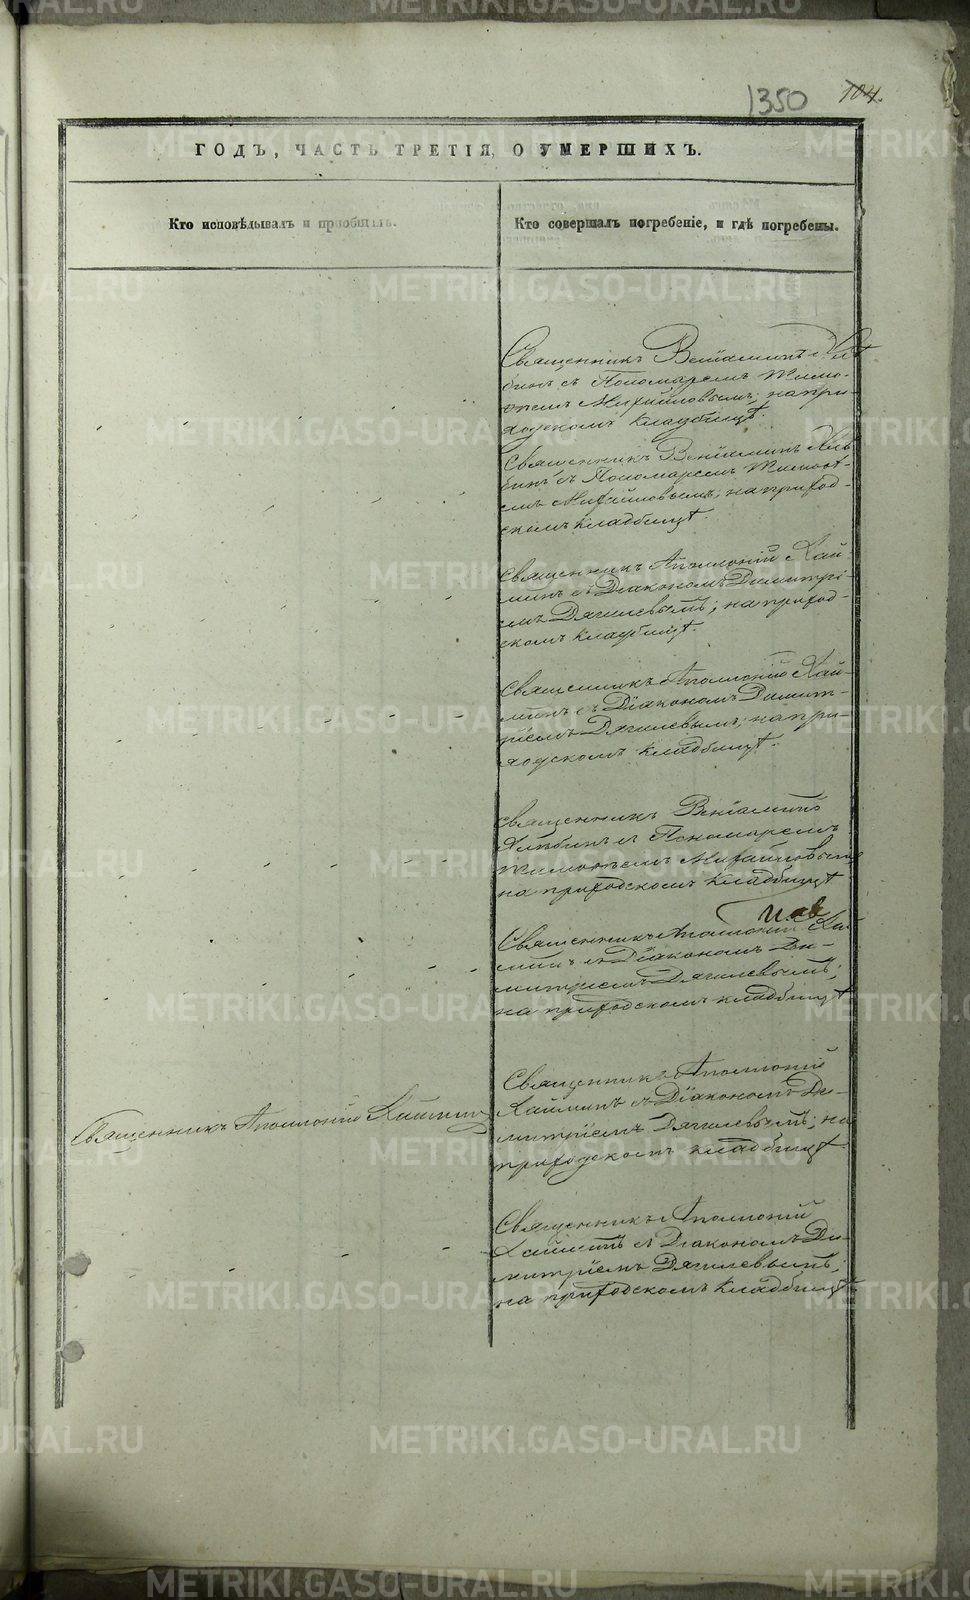 1350 104.
ГОДЪ, ЧАСТЬ ТРЕТІЯ, О УМЕРШИХЪ.
Кто исповѣдывалъ и пріобщалъ.
Кто совершалъ погребеніе, и гдѣ погребены.
Священникъ Веніаминъ Хлѣ
бинъ съ Пономаремъ Тимо-
ѳеемъ Михайловымъ; на при-
ходскомъ кладбищѣ.
Священникъ Веніаминъ Хлѣ
бинъ съ Пономаремъ Тимоѳе-
емъ Михайловымъ; на приход-
скомъ кладбищѣ.
Священникъ Аполлоній Хай
минъ съ Діакономъ Димитрі-
емъ Дягилевымъ; на приход-
скомъ кладбищѣ.
Священникъ Аполлоній Хай-
минъ съ Діакономъ Димит-
ріемъ Дягилевымъ; на при-
ходскомъ кладбищѣ.
Священникъ Веніаминъ
Хлѣбинъ съ Пономаремъ
Тимоѳеемъ Михайловымъ
на приходскомъ кладбищѣ
Священникъ Аполлоній Хай
минъ съ Діакономъ Ди-
митріемъ Дягилевымъ;
на приходскомъ кладбищѣ
Священникъ Аполлоній Хайминъ
Священникъ Аполлоній
Хайминъ съ Діакономъ Ди-
митріемъ Дягилевымъ; на
приходскомъ кладбищѣ.
Священникъ Аполлоній
Хайминъ съ Діакономъ Ди-
митріемъ Дягилевымъ;
на приходскомъ кладбищѣ
METRIKI.GASO-URAL.RU